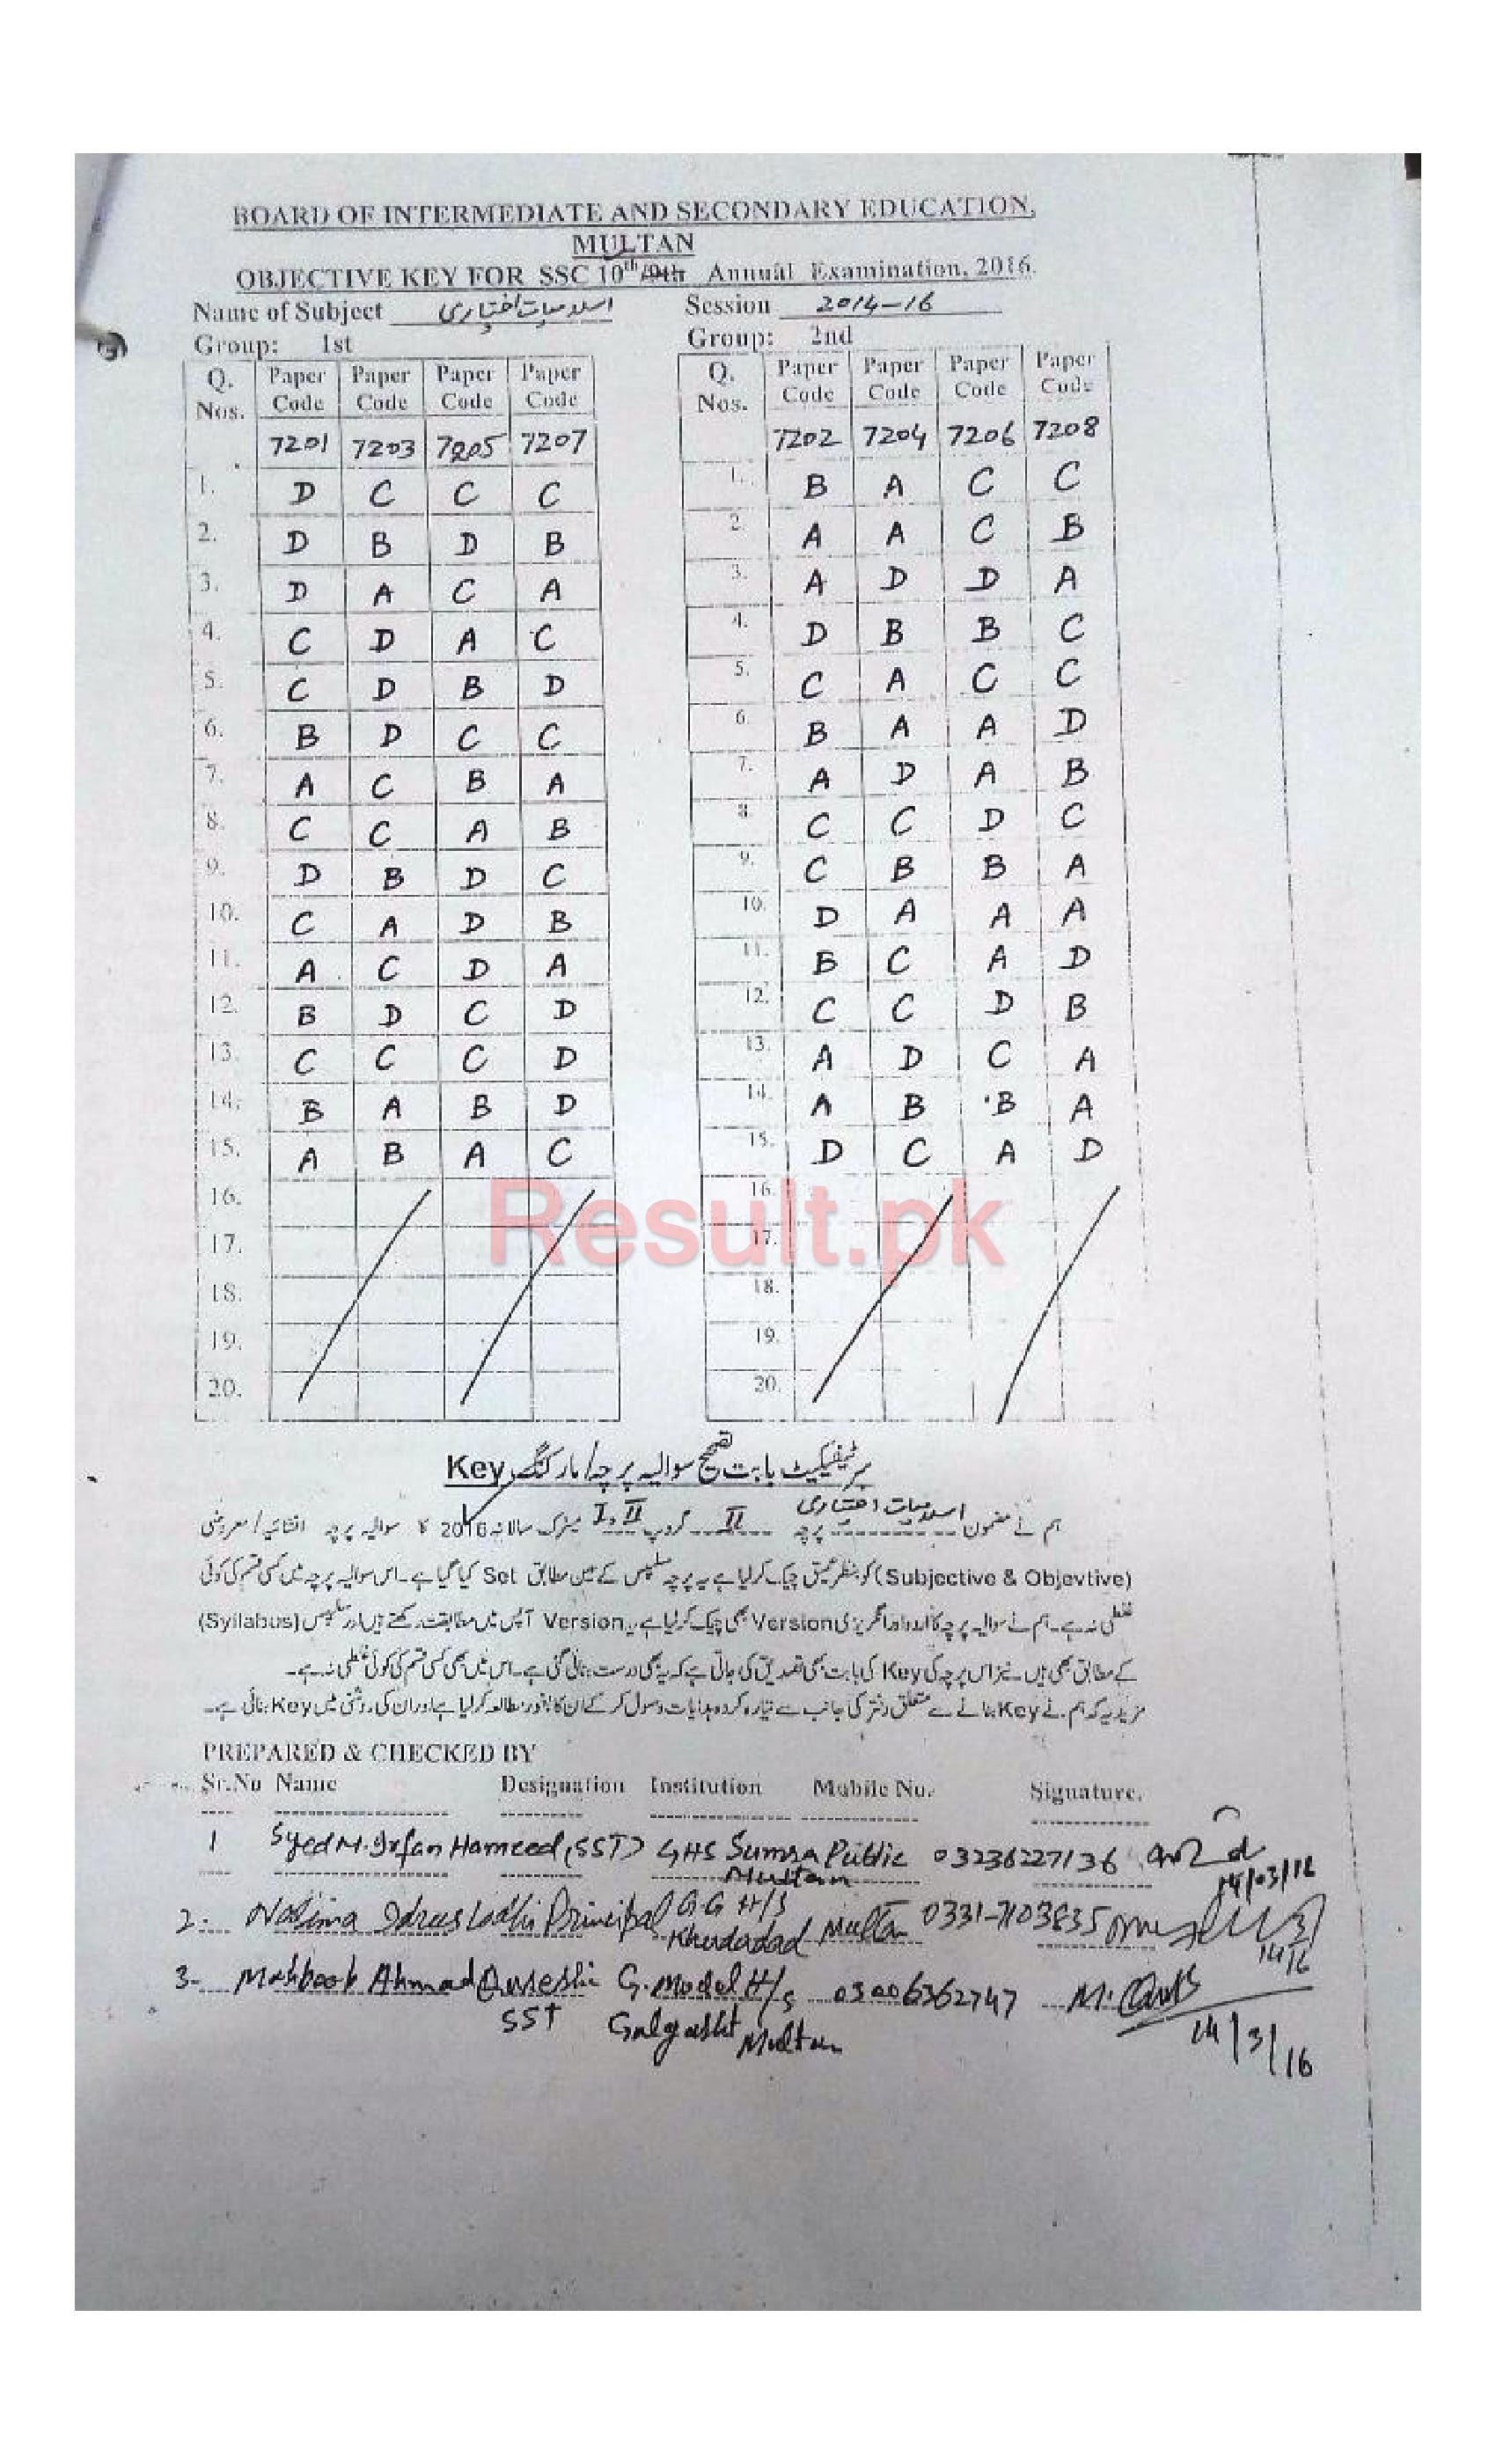 BOARD OF INTERMEDIATE AND SECONDARY EDUCATION,
MULTAN
OBJECTIVE KEY FOR SSC 10th/9th Annual Examination, 2016.
Name of Subject اسلامیات اختیاری Session 2014-16
Group: 1st Group: 2nd
Q. Nos. Paper Code Paper Code Paper Code Paper Code Q. Nos. Paper Code Paper Code Paper Code Paper Code
7201 7203 7205 7207 7202 7204 7206 7208
1. D C C C 1. B A C C
2. D B D B 2. A A C B
3. D A C A 3. A D D A
4. C D A C 4. D B B C
5. C D B D 5. C A C C
6. B D C C 6. B A A D
7. A C B A 7. A D A B
8. C C A B 8 C C D C
9. D B D C 9. C B B A
10. C A D B 10. D A A A
11. A C D A 11. B C A D
12. B D C D 12. C C D B
13. C C C D 13. A D C A
14. B A B D 14. A B B A
15. A B A C 15. D C A D
16. 16.
17. 17.
18. 18.
19. 19.
20. 20.
Result.pk
سرٹیفکیٹ بابت تصحیح سوالیہ پرچہ/مارکنگ Key
ہم نے مضمون اسلامیات اختیاری پرچہ II گروپ I, II میٹرک سالانہ 2016 کا سوالیہ پرچہ انشائیہ/معروضی
(Subjective & Objevtive) کو بنظر عمیق چیک کر لیا ہے یہ پرچہ سلیبس کے عین مطابق Set کیا گیا ہے۔ اس سوالیہ پرچہ میں کسی قسم کی کوئی
غلطی نہ ہے۔ ہم نے سوالیہ پرچہ کا اردو اور انگریزی Version بھی چیک کر لیا ہے یہ Version آپس میں مطابقت رکھتے ہیں اور سلیبس (Syllabus)
کے مطابق بھی ہیں۔ نیز اس پرچہ کی Key کی بابت بھی تصدیق کی جاتی ہے کہ یہ بھی درست بنائی گئی ہے۔ اس میں بھی کسی قسم کی کوئی غلطی نہ ہے۔
مزید یہ کہ ہم نے Key بنانے سے متعلق دفتر کی جانب سے تیار کردہ ہدایات وصول کر کے ان کا بغور مطالعہ کر لیا ہے اور ان کی روشنی میں Key بنائی ہے۔
PREPARED & CHECKED BY
Sr.No Name Designation Institution Mobile No. Signature.
1 Syed M. Irfan Hameed (SST) GHS Sumra Public Multan 03236227136
14/03/16
2. Nasima Idrees Lodhi Principal G.G H/S Khudadad Multan 0331-7103835
3- Mahboob Ahmad Qureshi G. Model H/S 03006362747
SST Gulgasht Multan
14/3/16